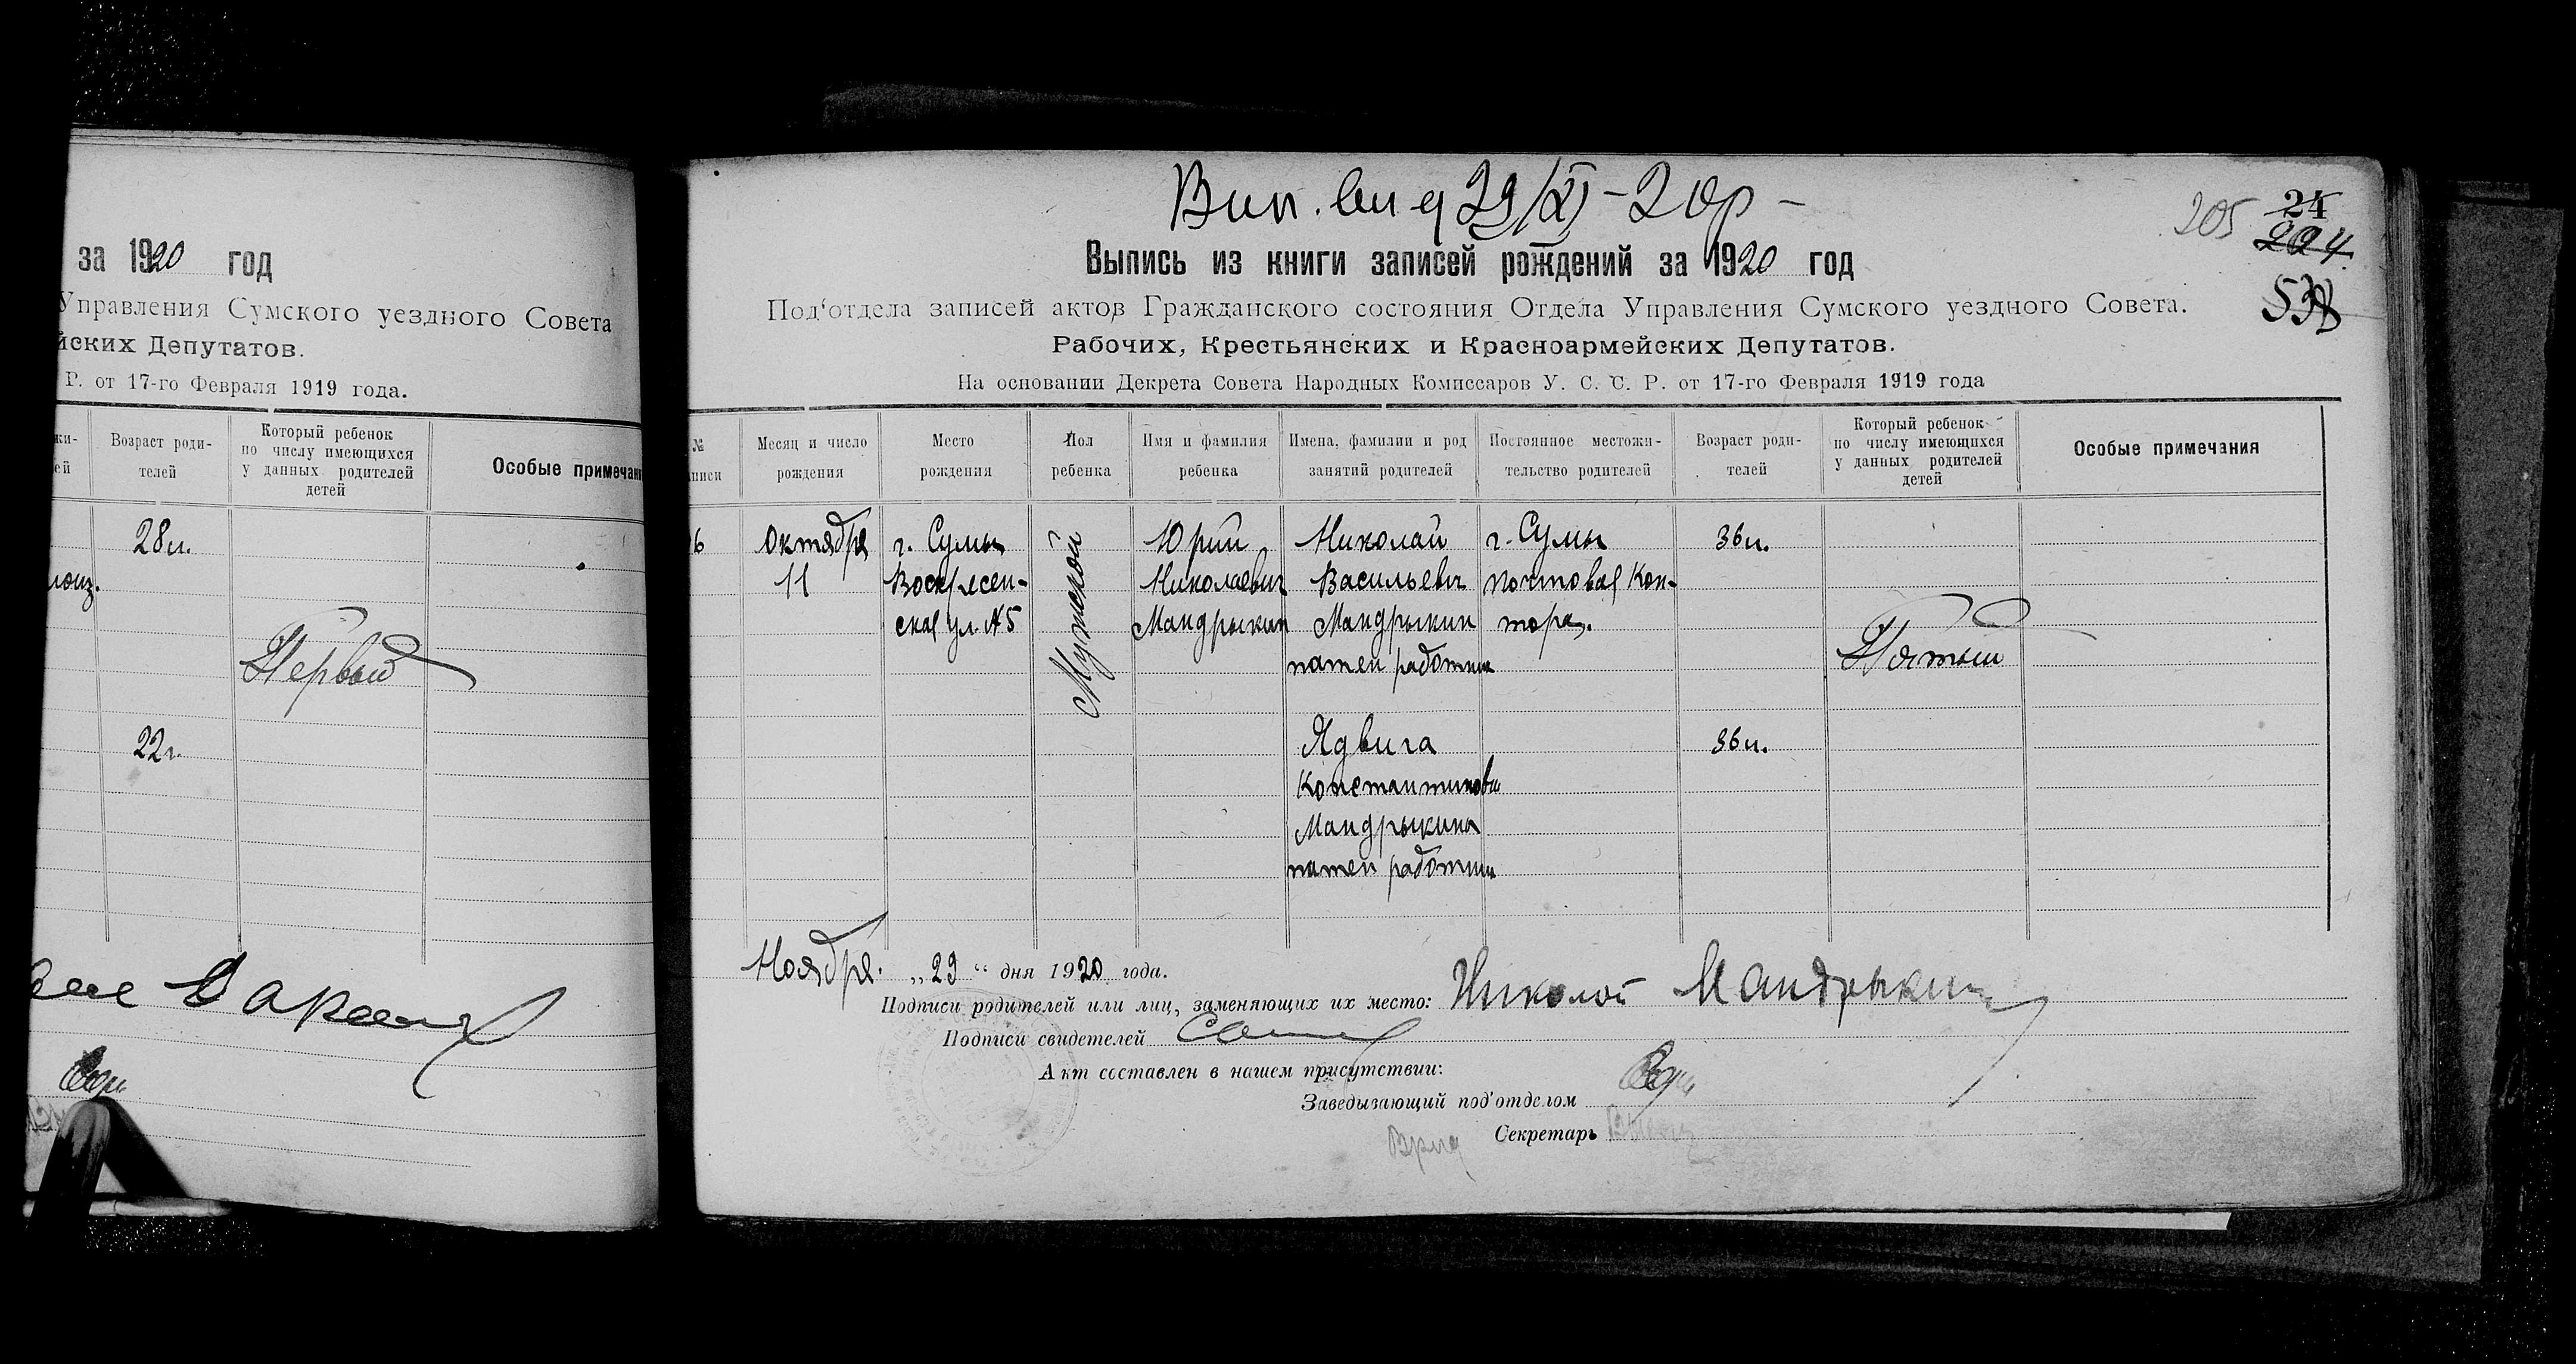 за 1920 год
Управления Сумского уездного Совета
йских Депутатов.
Р. от 17-го Февраля 1919 года.
Возраст роди-
телей
Который ребенок
по числу имеющихся
у данных родителей
детей
Особые примечан
28 л.
Первый
22 г.
Вип. вид 29/XI - 20 р -
205 24
224
Выпись из книги записей рождений за 1920 год
Под'отдела записей актов Гражданского состояния Отдела Управления Сумского уездного Совета.
Рабочих, Крестьянских и Красноармейских Депутатов.
На основании Декрета Совета Народных Комиссаров У. С. С. Р. от 17-го Февраля 1919 года
№
Месяц и число
рождения
Место
рождения
Пол
ребенка
Имя и фамилия
ребенка
Имена, фамилии и род
занятий родителей
Постоянное местожи-
тельство родителей
Возраст роди-
телей
Который ребенок
по числу имеющихся
у данных родителей
детей
Особые примечания
6
Октября
11
г. Сумы
Воскресен-
ская ул. №5
Мужской
Юрий
Николаевич
Мандрыкин
Николай
Васильевич
Мандрыкин
почтов работник
Ядвига
Константиновн
Мандрыкина
г. Сумы
почтовая кон-
тора.
36 л.
36 л.
Пятый
Ноября. „29“ дня 1920 года.
Подписи родителей или лиц, заменяющих их место: Николай Мандрыкин
Подписи свидетелей
Акт составлен в нашем присутствии:
Заведывающий под'отделом
Секретарь